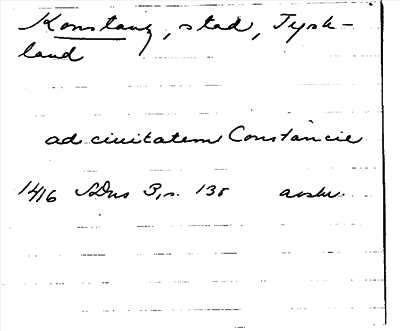 Konstanz, stad, Tysk-
land
ad civitatem Constancie
1416 SDns 3, s. 138 avskr